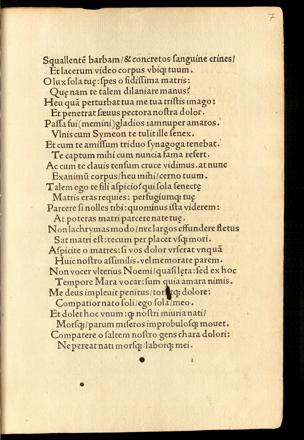 7
Squallentē barbam/& concretos sanguine crines/
Et lacerum video corpus vbiq; tuum.
O lux sola tuę: spes o fidissima matris:
Quę nam te talem dilaniare manus?
Heu quā perturbat tua me tua tristis imago:
Et penetrat sæuus pectora nostra dolor.
Passa fui (memini) gladios iam nuper amaros.
Vlnis cum Symeon te tulit ille senex.
Et cum te amissum triduo synagoga tenebat.
Te captum mihi cum nuncia fama refert.
Ac cum te clauis tensum cruce vidimus. at nunc
Exanimū corpus/heu mihi/cerno tuum.
Talem ego te fili aspicio? qui sola senectę
Matris eras requies: perfugiumq; tuę
Parcere si nolles tibi: quominus ista viderem:
At poteras matri parcere nate tuę.
Non lachrymas modo/nec largos effundere fletus
Sat matri est: tecum per placet vsq; mori.
Aspicite o matres: si vos dolor vrserat vnquā
Huic nostro assimilis. vel memorate parem.
Non vocer vlterius Noemi/quasi lęta: sed ex hoc
Tempore Mara vocar: sum quia amara nimis.
Me deus impleuit penitus/ dolore:
Compatior nato soli/ego sola/meo.
Et dolet hoc vnum: q nostri iniuria nati/
Morsq;/parum miseros improbulosq; mouet.
Compatere o saltem nostro gens chara dolori:
Ne pereat nati morsq;/laborq; mei.